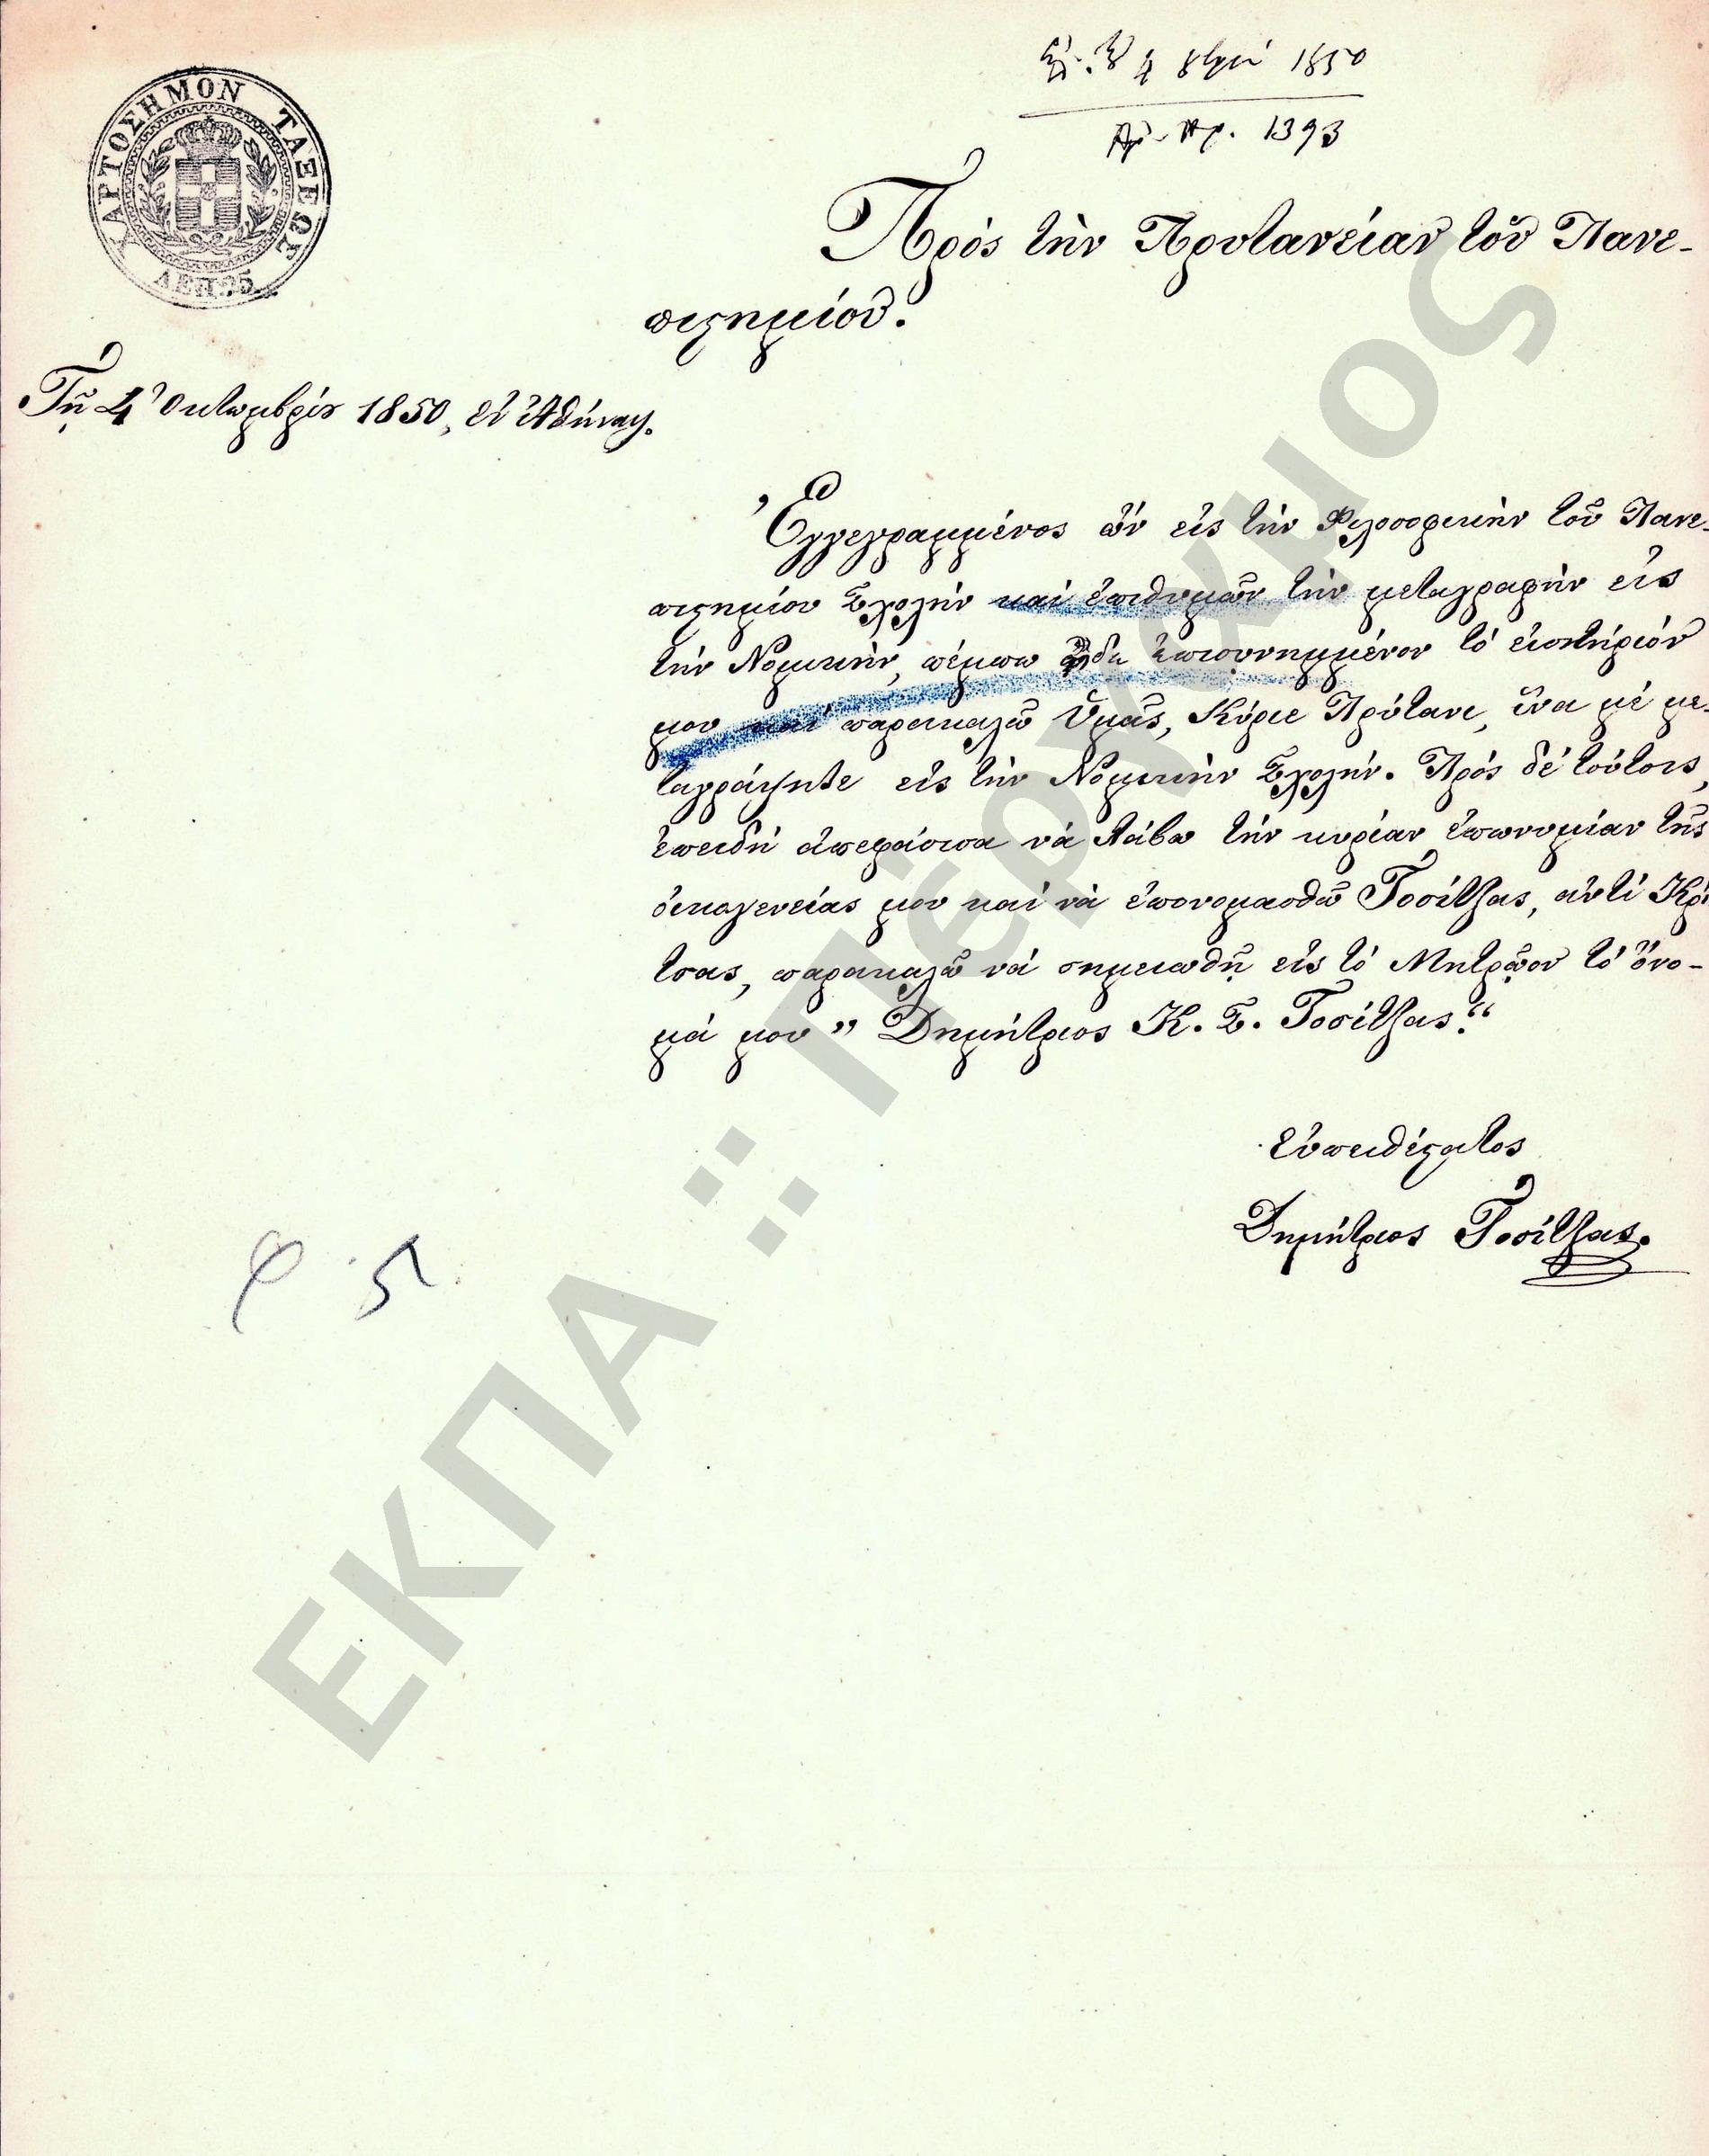 ΧΑΡΤΟΣΗΜΟΝ ΤΑΞΕΩΣ
ΛΕΠ. 25
4 8βρίου 1850
Αρ. Πρ. 1393
Πρὸς τὴν Πρυτανείαν τοῦ Πανε-
πιστημίου.
Τῇ 4 Ὀκτωμβρίου 1850, ἐν Ἀθήναις.
Ἐγγεγραμμένος ὢν εἰς τὴν Φιλοσοφικὴν τοῦ Πανε-
πιστημίου Σχολὴν καὶ ἐπιθυμῶν τὴν μεταγραφὴν εἰς
τὴν Νομικὴν, πέμπω ἐπισυνημμένον τὸ εἰσιτήριόν
μου καὶ παρακαλῶ Ὑμᾶς, Κύριε Πρύτανι, ἵνα μὲ με-
ταγράψητε εἰς τὴν Νομικὴν Σχολήν. Πρὸς δὲ τούτοις,
ἐπειδὴ ἀπεφάσισα νὰ λάβω τὴν κυρίαν ἐπωνυμίαν τῆς
οἰκογενείας μου καὶ νὰ ἐπονομασθῶ Τοσίτζας, ἀντὶ Κρί
τσας, παρακαλῶ νὰ σημειωθῇ εἰς τὸ Μητρῷον τὸ ὄνο-
μά μου „ Δημήτριος Κ. Σ. Τοσίτζας.“
Εὐπειθέστατος
Δημήτριος Τοσίτζας.
φ. 5
ΕΚΠΑ :: Πέργαμος